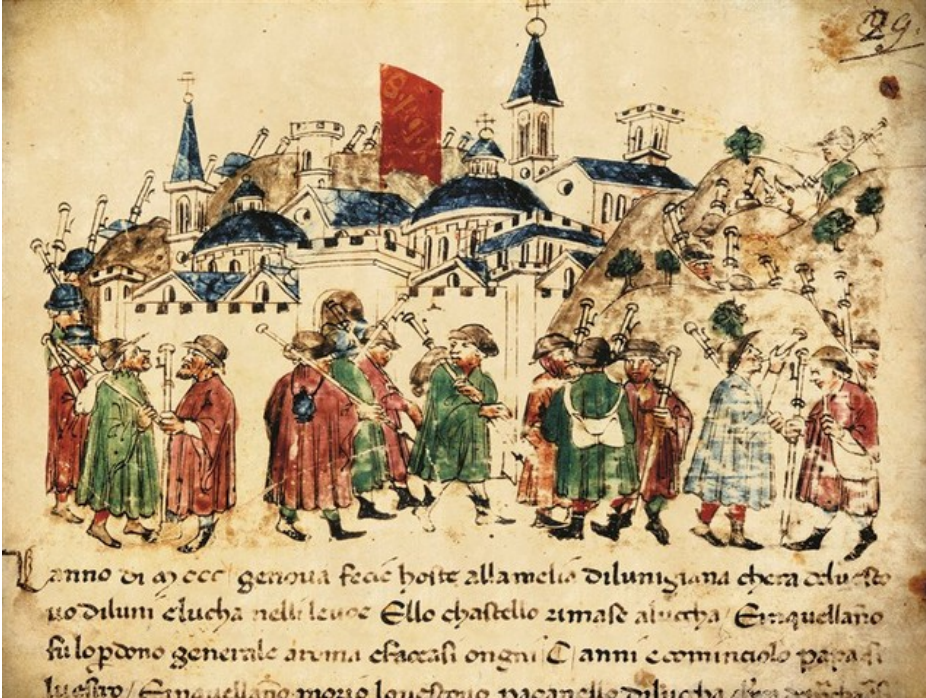 29.
Lanno di mccc genova fecie hoste allamelia dilunigiana chera delvesco
vo diluni elucha nelli levoe Ello chastello rimase aluccha / Einquellano
fu lo pdono generale aroma efaceasi ongni C anni e cominciolo papa si
lvestro / Einquellanno morio lovescovo paganello dilucha